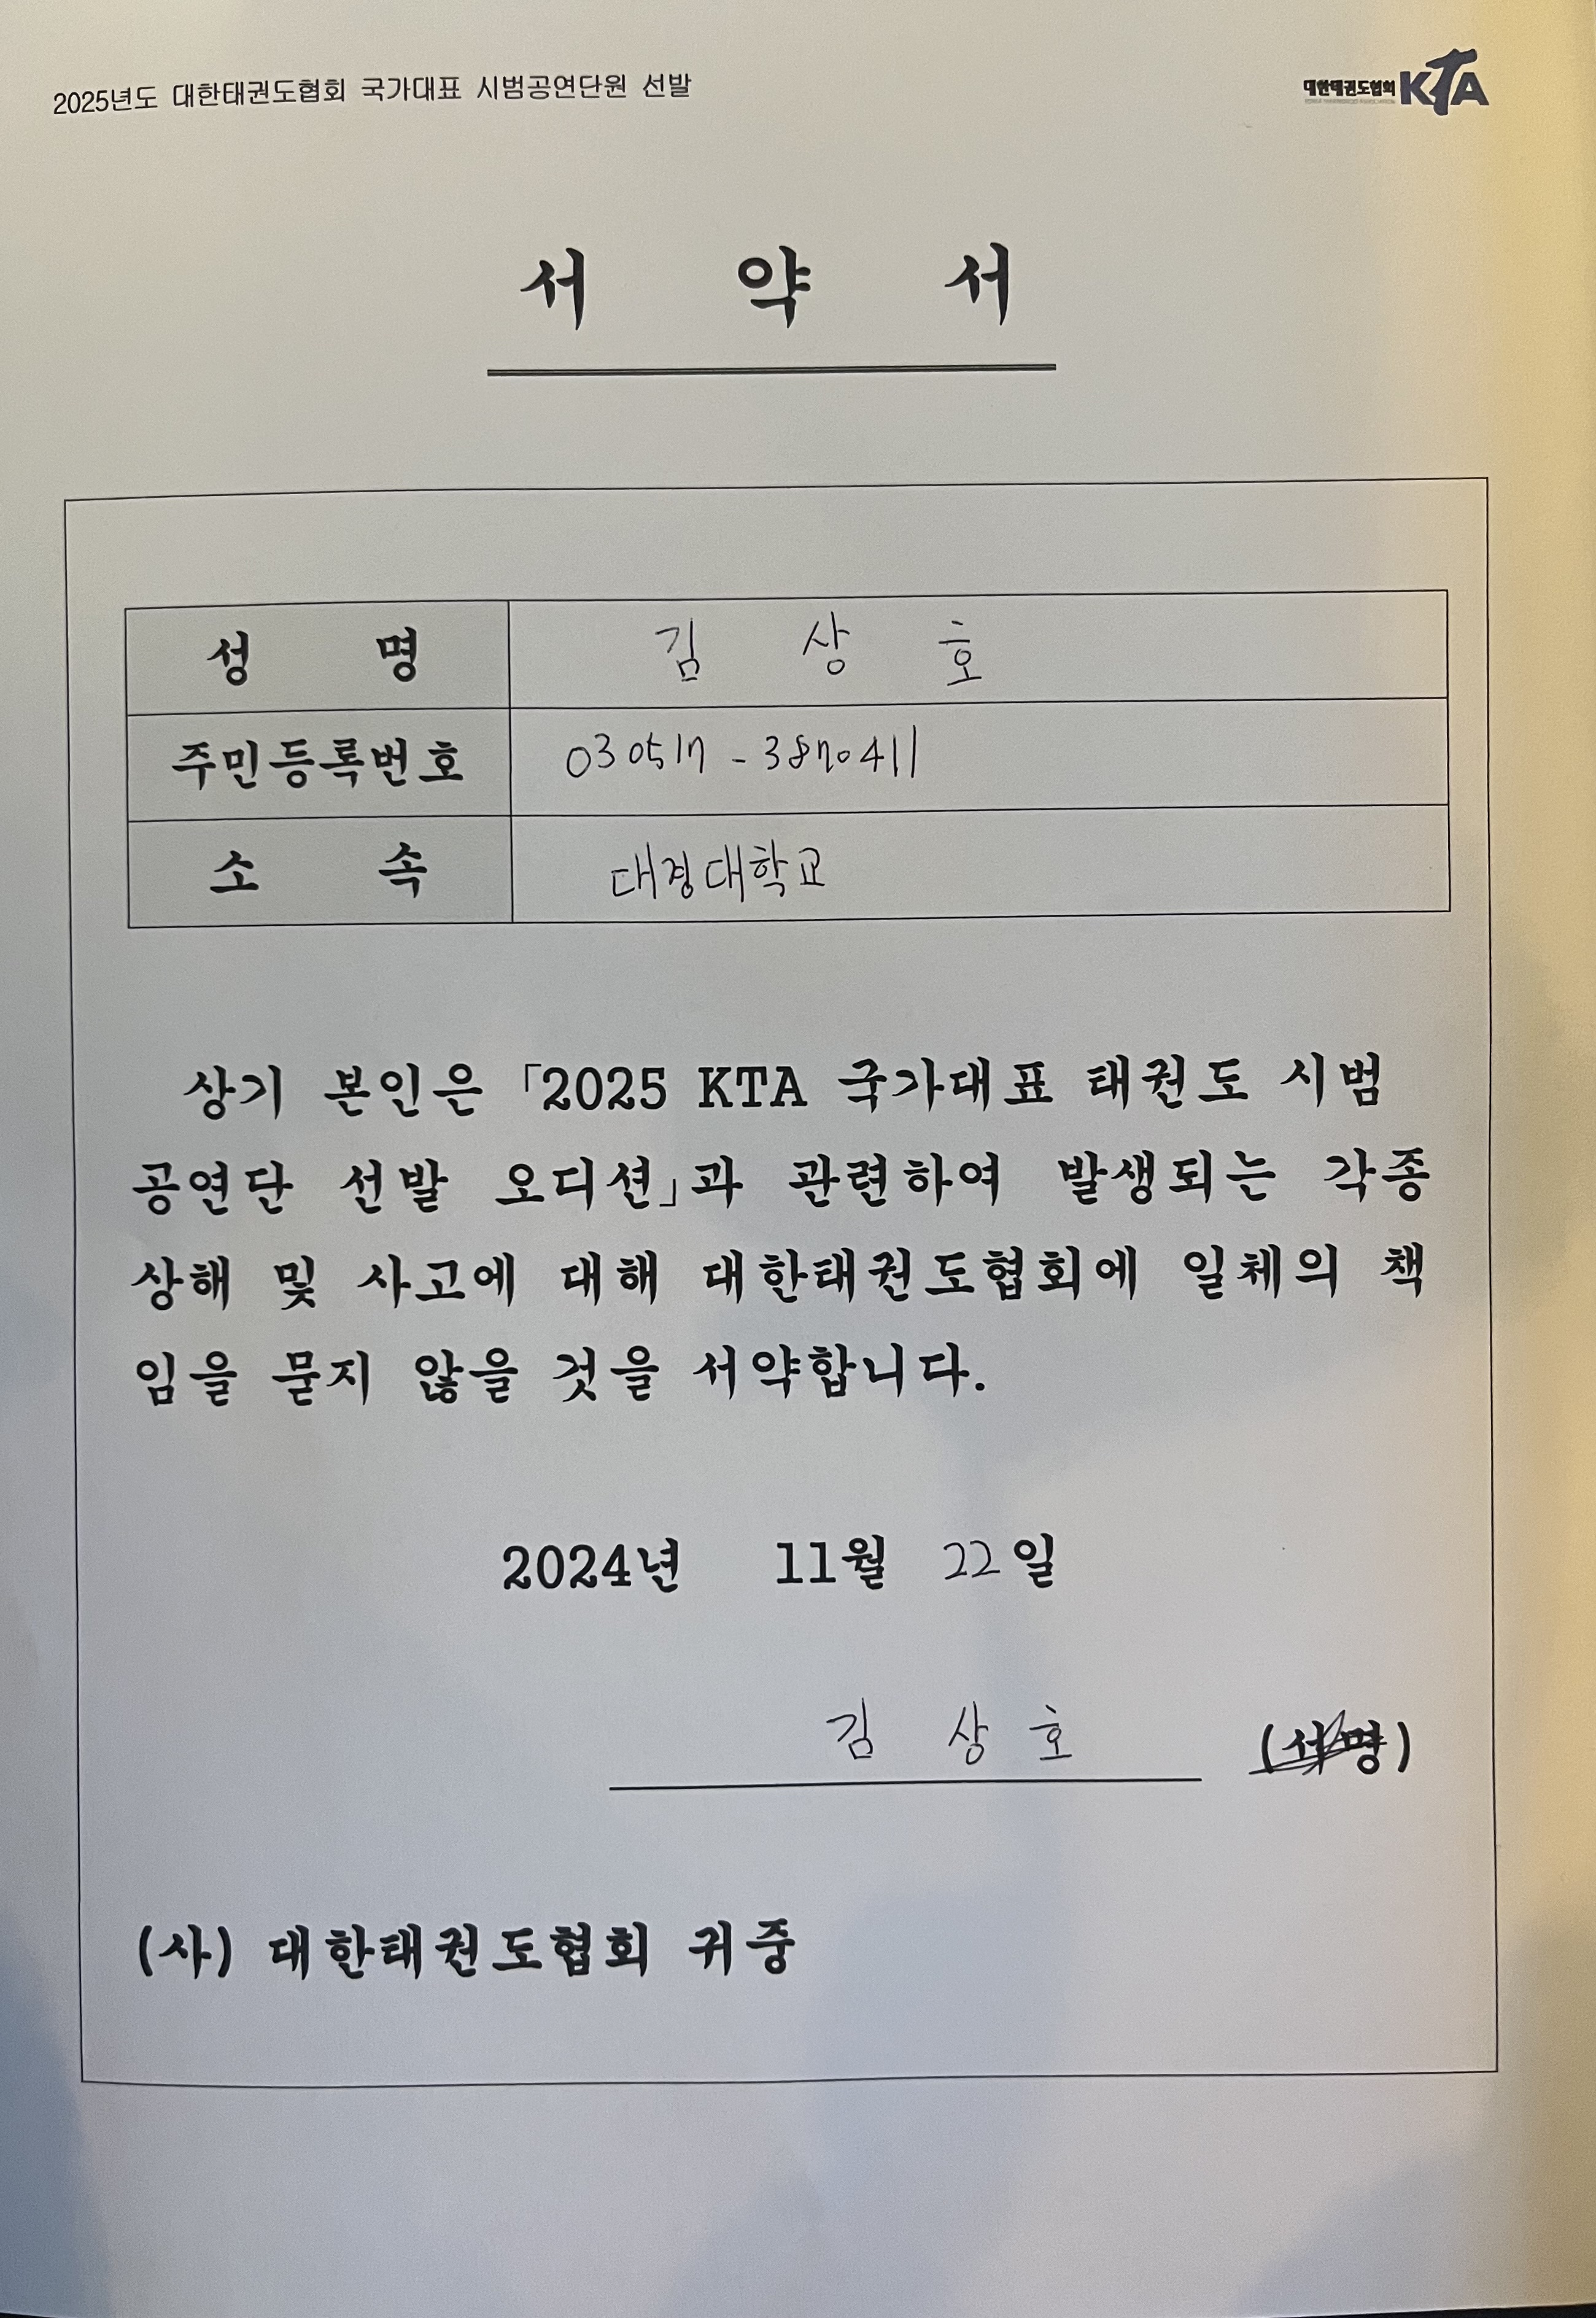 2025년도 대한태권도협회 국가대표 시범공연단원 선발
대한태권도협회 KTA
서 약 서
성 명 김 상 호
주민등록번호 030517 - 3870411
소 속 대경대학교
상기 본인은 「2025 KTA 국가대표 태권도 시범
공연단 선발 오디션」과 관련하여 발생되는 각종
상해 및 사고에 대해 대한태권도협회에 일체의 책
임을 묻지 않을 것을 서약합니다.
2024년 11월 22일
김 상 호 (서명)
(사) 대한태권도협회 귀중